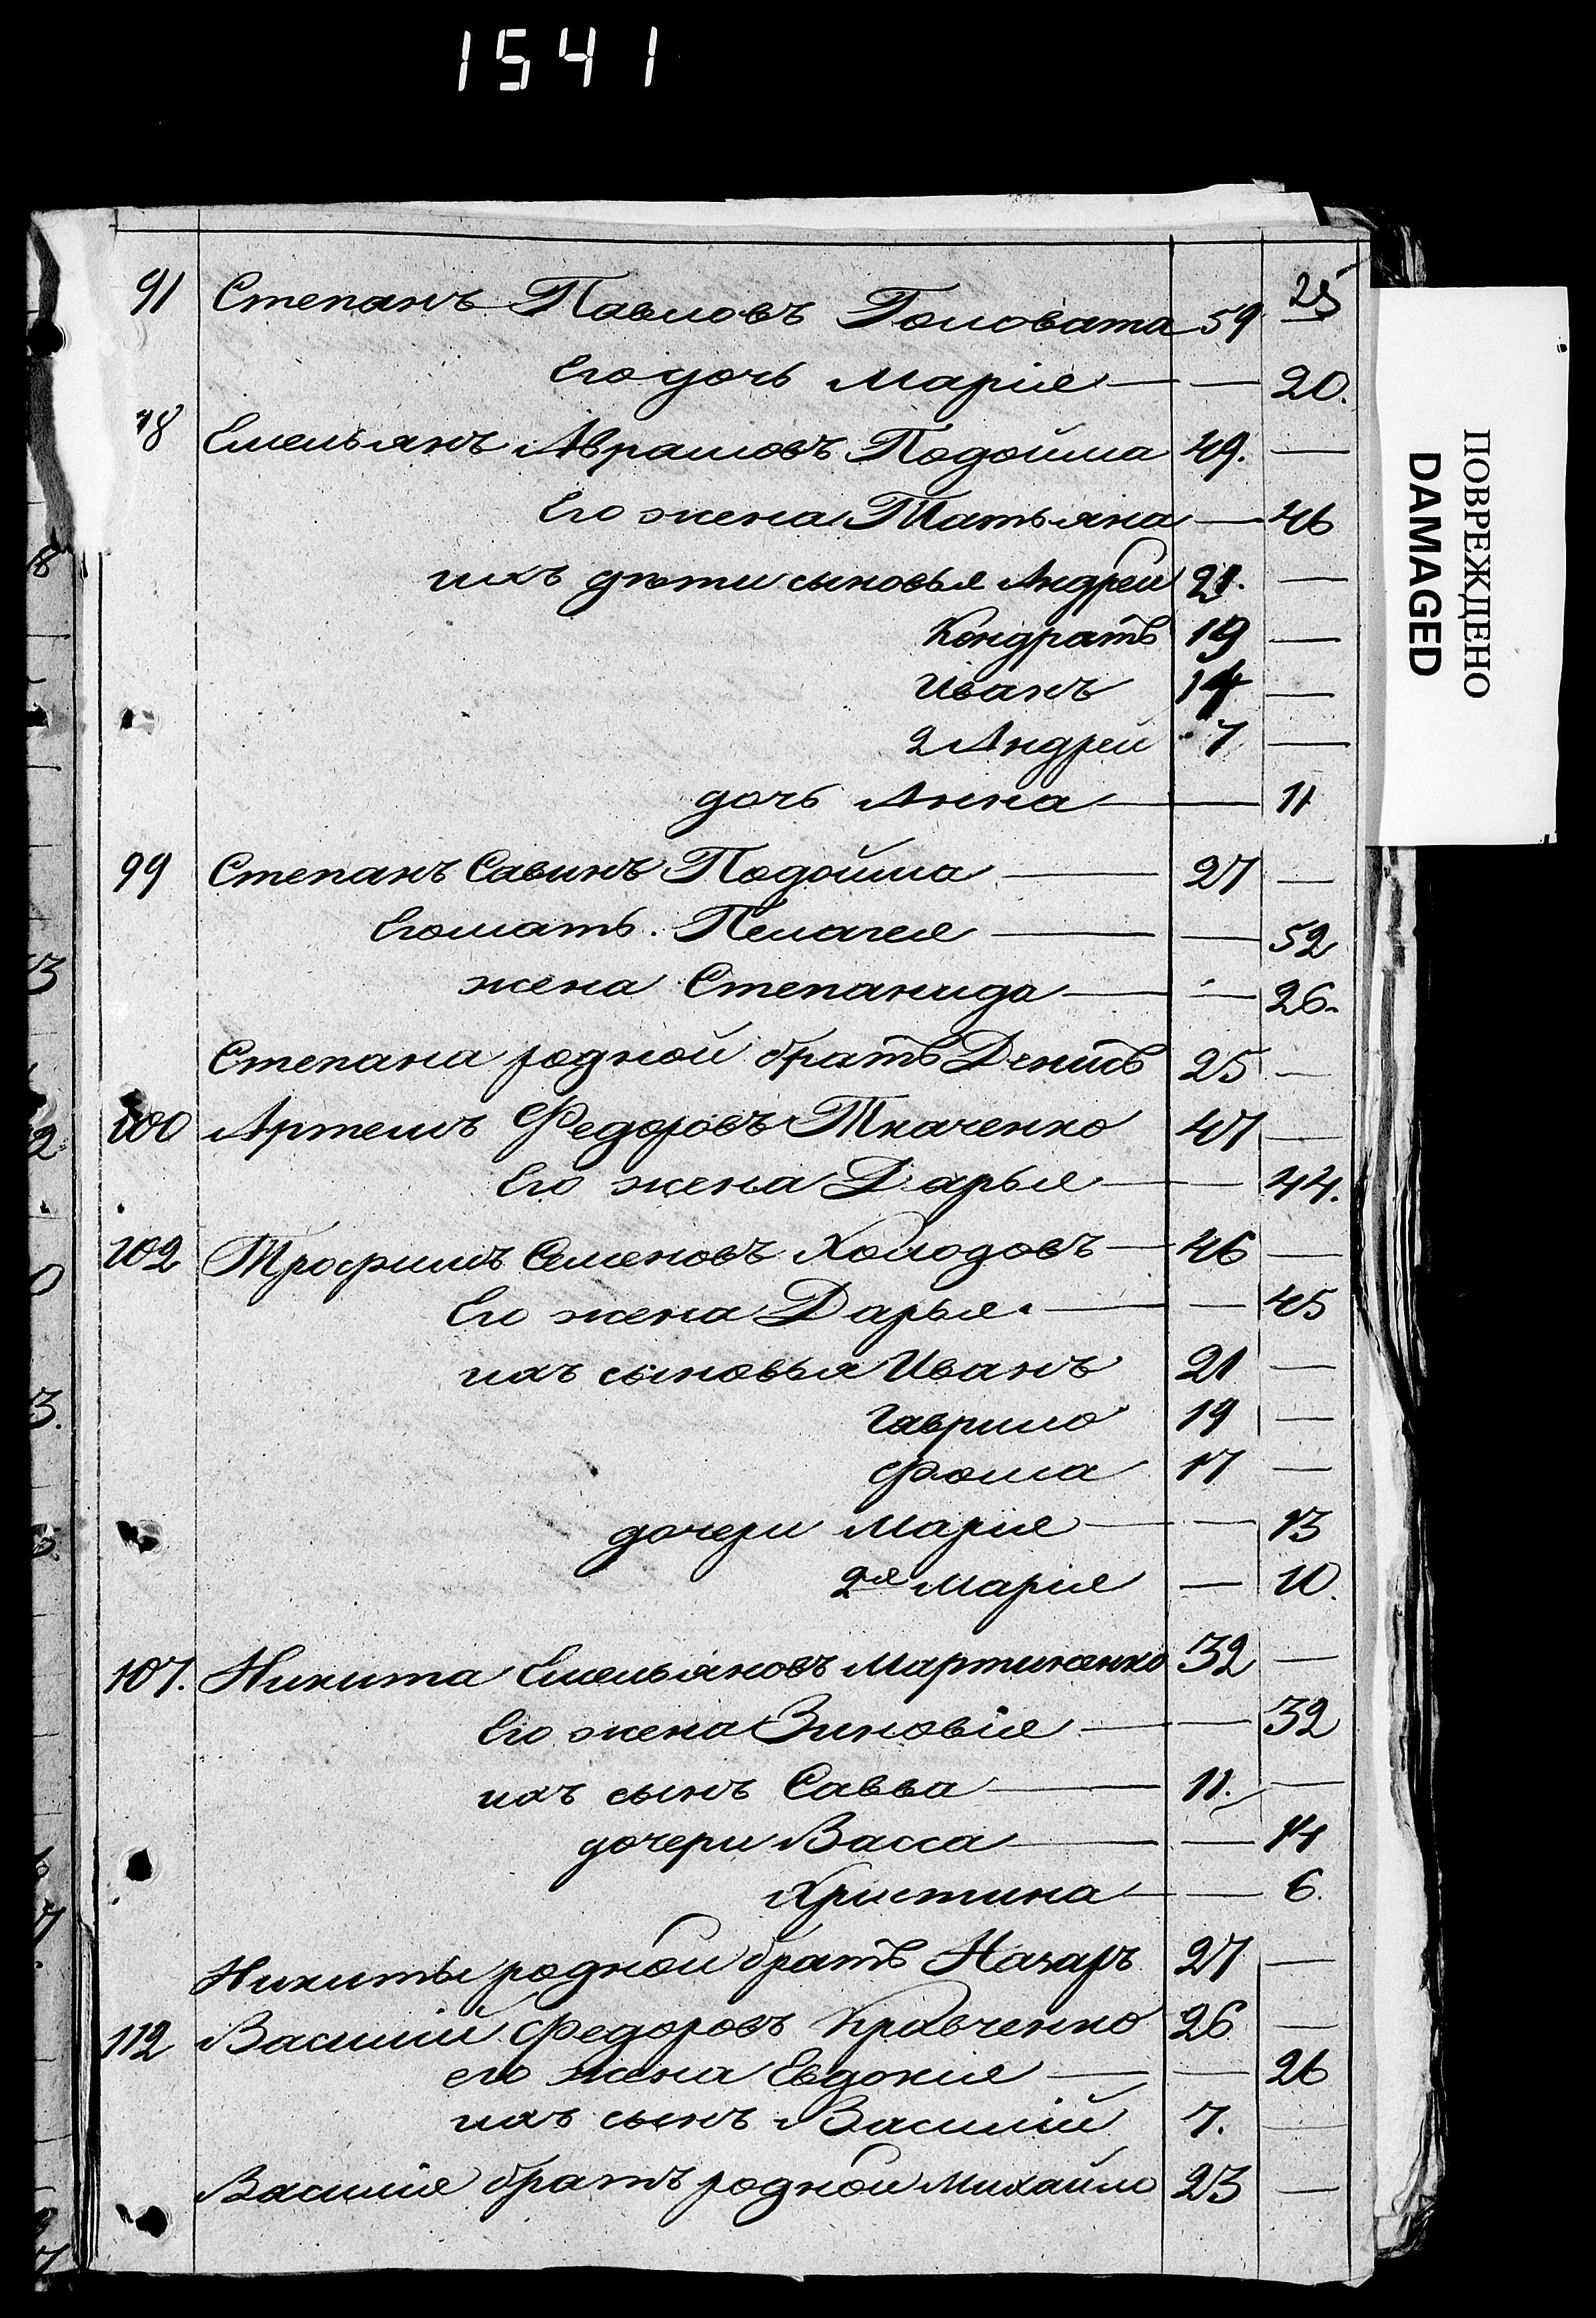 1541
25
91 Степанъ Павловъ Головата 59 —
Его дочь Марія — — 20.
98 Емельянъ Аврамовъ Подойма 49. —
Его жена Татьяна — 46
ихъ дѣти сыновья Андрей 21. —
Кондратъ 19 —
Иванъ 14 —
2 Андрей 7 —
дочь Анна — — 11
99 Степанъ Савинъ Подойма — 27 —
Его мать. Пелагея — — 52
жена Степанида — — 26.
Степана родной братъ Денисъ 25 —
100 Артемъ Федоровъ Ткаченко 47 —
Его жена Дарья — — 44.
102 Трофимъ Семеновъ Холодовъ — 46 —
Его жена Дарья. — — 45
ихъ сыновья Иванъ 21 —
Гаврило 19 —
Фома 17 —
дочери Марія — — 13
2я Марія — 10.
107. Никита Емельяновъ Мартиненко 32 —
Его жена Зиновія — — 32
ихъ сынъ Савва — 11. —
дочери Васса — — 14
Христина — — 6.
Никиты родной братъ Назаръ 27 —
112 Василій Федоровъ Кравченко 26 —
его жена Евдокія — — 26
ихъ сынъ Василій 7. —
Василія братъ родной Михайло 23 —
ПОВРЕЖДЕНО
DAMAGED